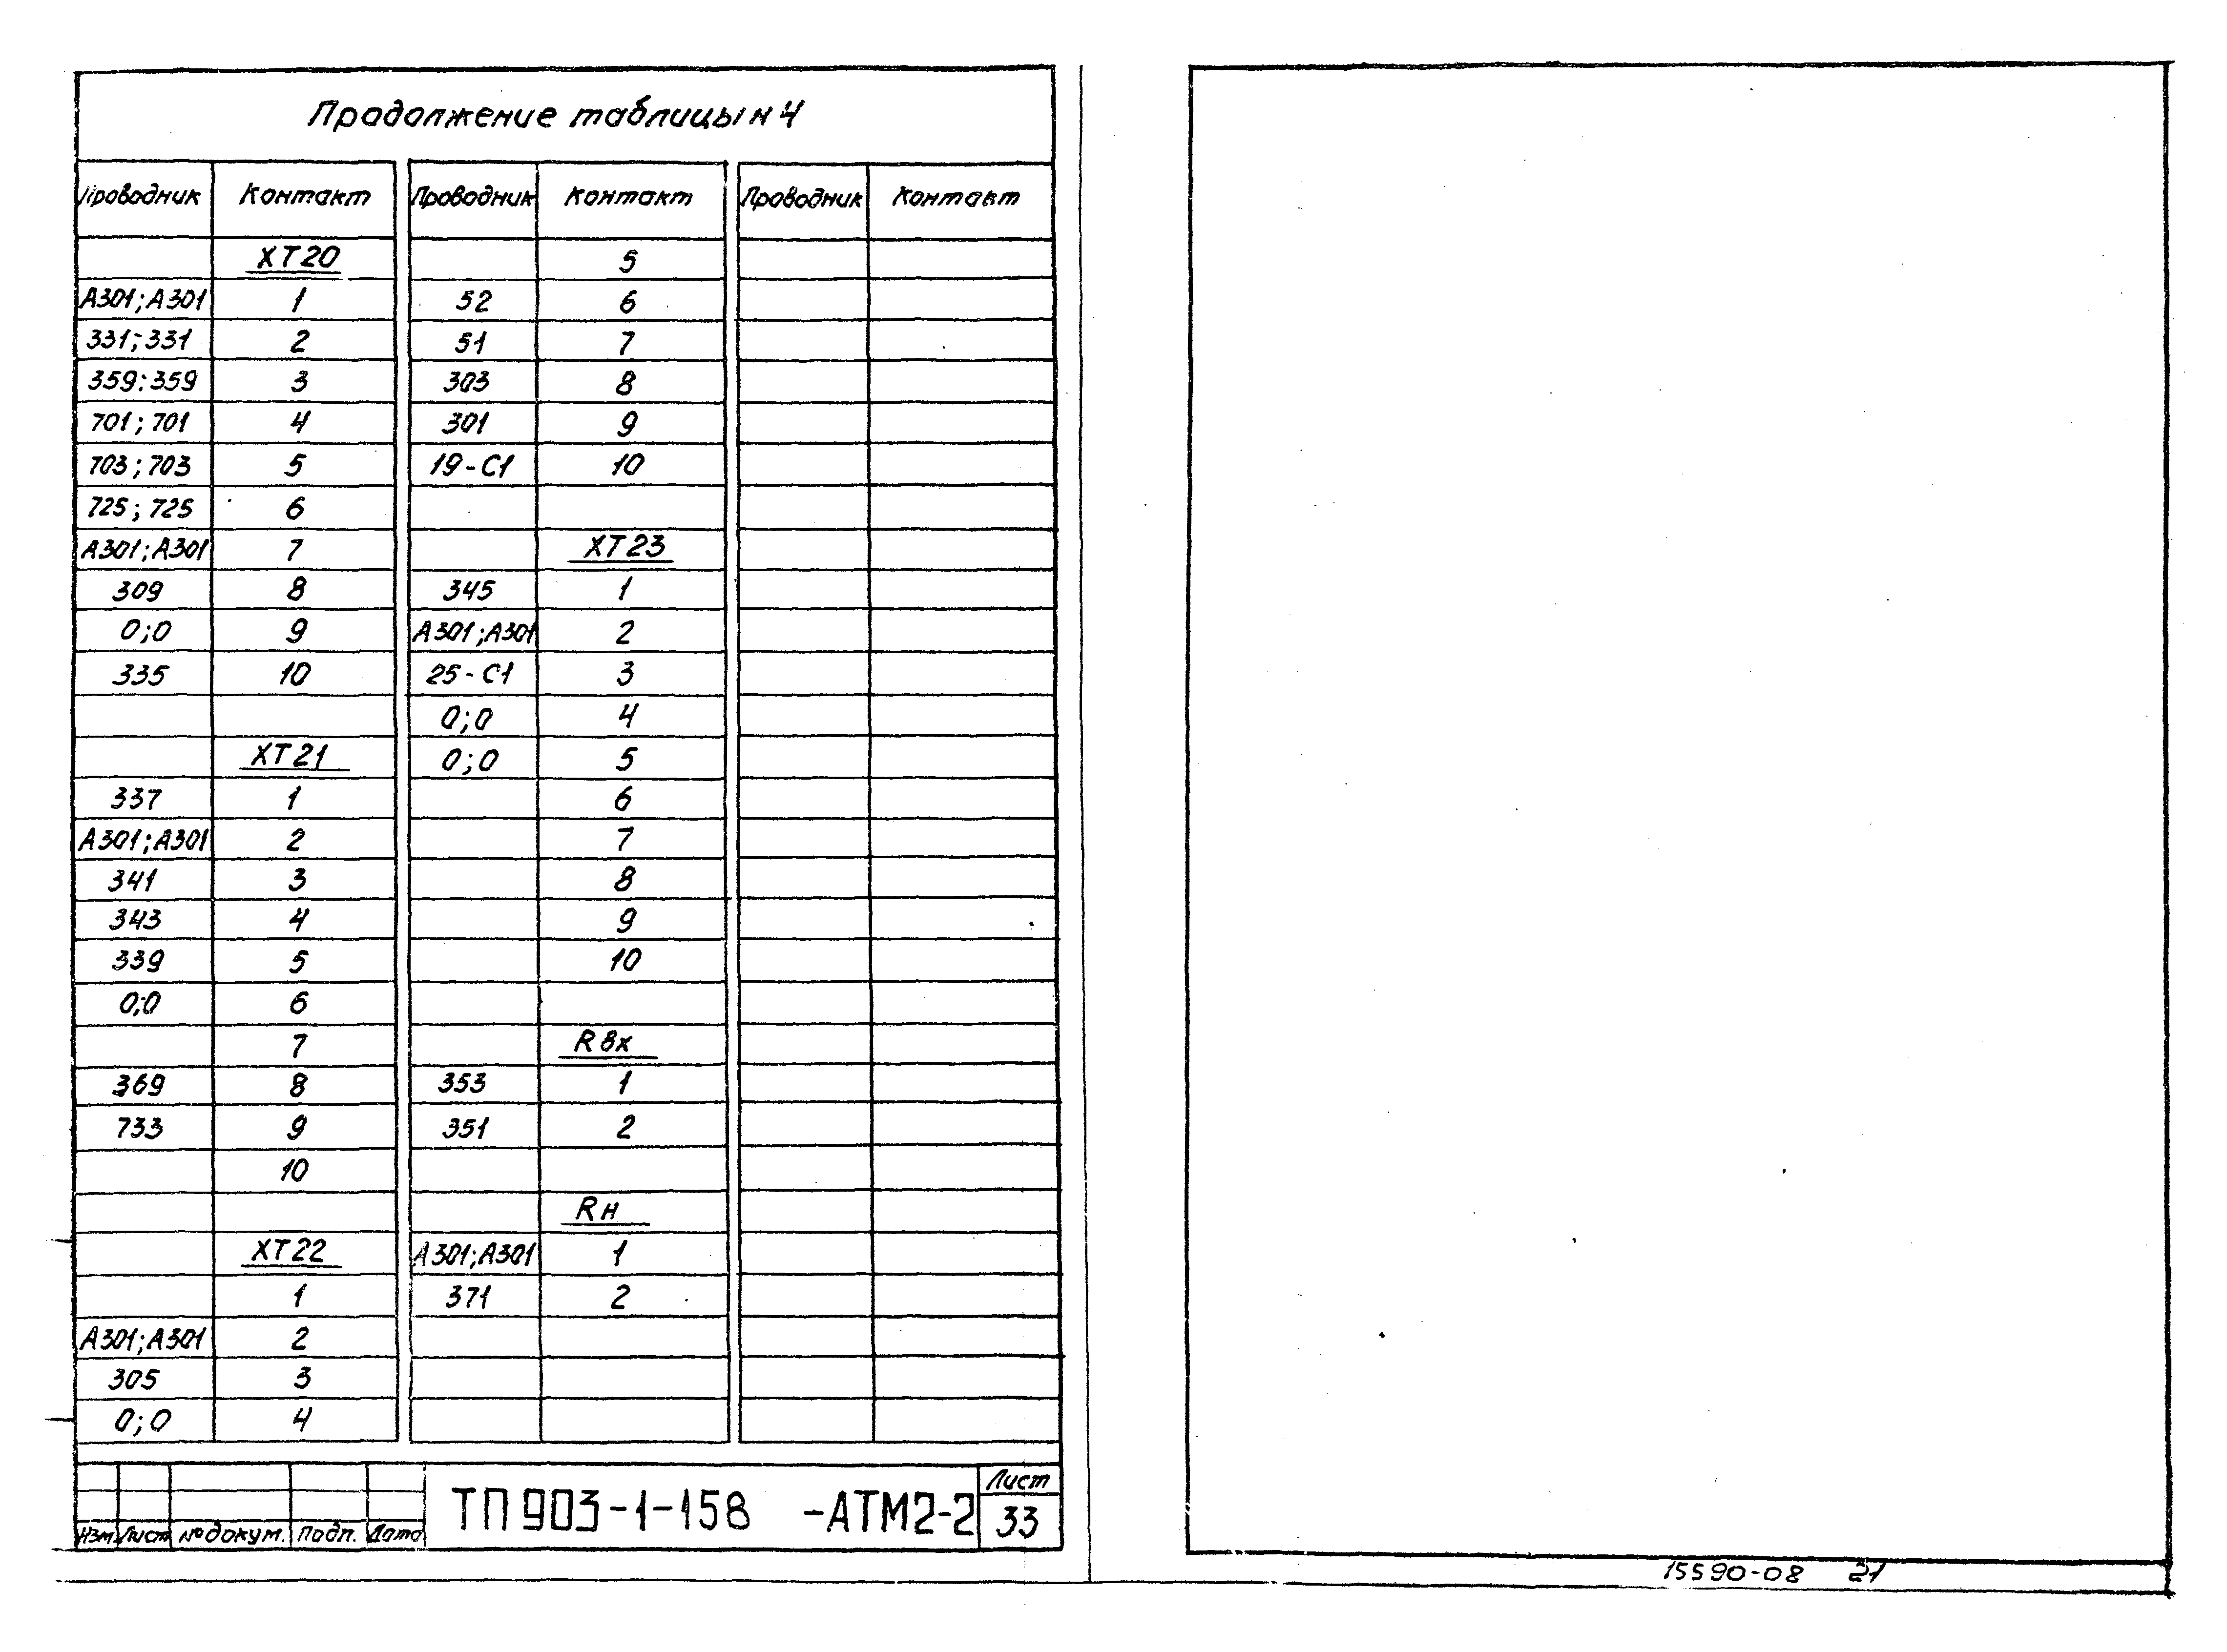 Продолжение таблицы N4
Проводник Контакт Проводник Контакт Проводник Контакт
XT20 5
А301;А301 1 52 6
331;331 2 51 7
359:359 3 303 8
701;701 4 301 9
703;703 5 19-С1 10
725;725 6
А301;А301 7 XT23
309 8 345 1
0;0 9 А301;А301 2
335 10 25-С1 3
0;0 4
XT21 0;0 5
337 1 6
А301;А301 2 7
341 3 8
343 4 9
339 5 10
0;0 6
7 Rвх
369 8 353 1
733 9 351 2
10
Rн
XT22 А301;А301 1
1 371 2
А301;А301 2
305 3
0;0 4
Изм. Лист № докум. Подп. Дата ТП903-1-158 -АТМ2-2 Лист
33
15590-08 21